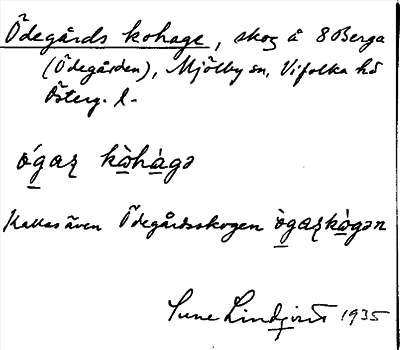 Ödegårds kohage, skog å 8 Berga
(Ödegården), Mjölby sn, Vifolka hd
Österg. l-
ógaʐ kòhàgə
Kallas även Ödegårdsskogen ògaʐkògən
Sune Lindqvist 1935